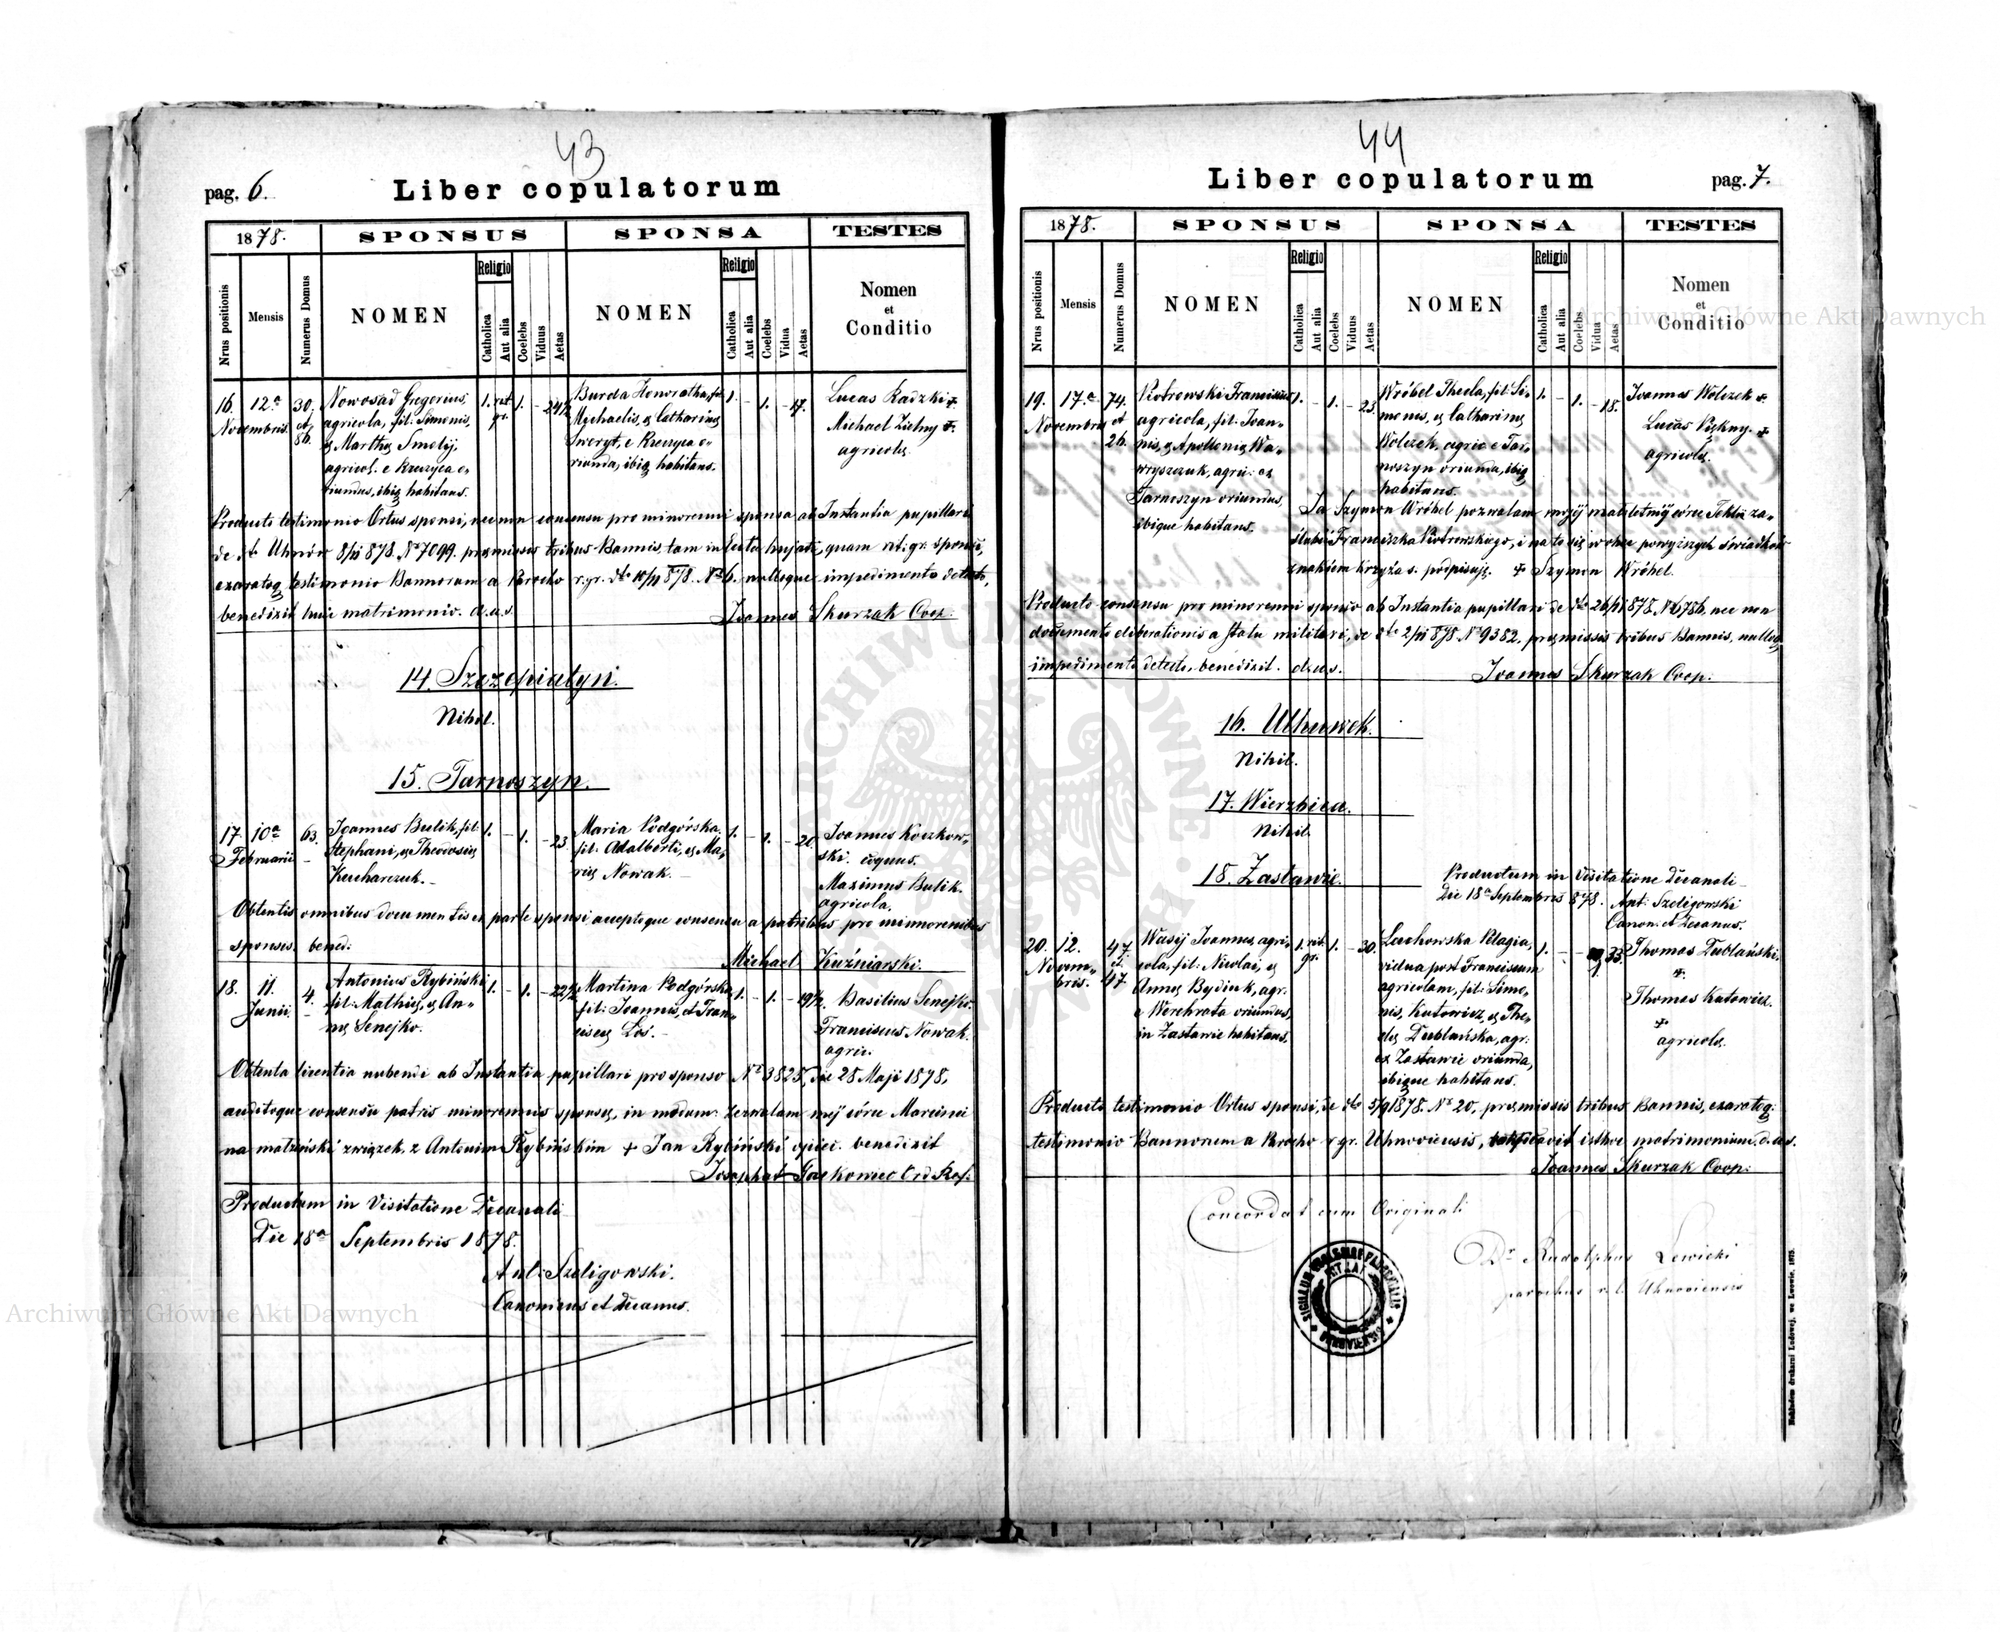 43
pag. 6.
Liber copulatorum
1878.
SPONSUS
SPONSA
TESTES
Nrus positionis
Mensis
Numerus Domus
NOMEN
Religio
Catholica
Aut alia
Coelebs
Viduus
Aetas
NOMEN
Religio
Catholica
Aut alia
Coelebs
Vidua
Aetas
Nomen
et
Conditio
16.
12a
Novembris.
30.
et
86.
Nowosad Gregorius,
agricola, fil: Simonis,
& Marthæ Smolij,
agricol. e Krzyca o-
riundus, ibiq habitans.
1.
rit.
gr.
1.
-
24½
Burda Honoratha, fil:
Michaelis, & Catharinæ
Sweryt, e Krzyca o-
riunda, ibiq habitans.
1.
-
1.
-
17.
Lucas Radzki +
Michael Zielny +
agricolæ.
Producto testimonio Ortus sponsi, nec non consensu pro minorenni sponsa ab Instantia pupillari
de dto Uhnów 8/11 878. No 7099. præmissis tribus Bannis, tam in Eccla hujate, quam rit: gr. sponsi,
exaratoq testimonio Bannorum a Parocho r. gr. dto 10/11 878. No 6. nulloque impedimento detecto,
benedixit huic matrimonio. d.u.s.
Joannes Skurzak Coop.
14. Szczepiatyn.
Nihil.
15. Tarnoszyn.
17.
10a
Februarii
63.
-
Joannes Bulik, fil:
Stephani, & Theodosiæ
Kucharczuk. -
1.
-
1.
-
23.
Maria Podgórska.
fil: Adalberti, & Ma-
riæ Nowak. -
1.
-
1.
-
20.
Joannes Koczkow-
ski. coquus.
Maximus Bulik.
agricola.
Obtentis omnibus documentis ex parte sponsi acceptoque consensu a patribus pro minorenibus
sponsis. bened:
Michael Kuźniarski.
18.
11.
Junii
4.
-
Antonius Rybiński
fil: Mathiæ, & An-
næ Senejko.
1.
-
1.
-
22½
Martina Podgórska,
fil: Joannis, et Fran-
ciscæ Łoś. -
1.
-
1.
-
19½
Basilius Senejko.
Franciscus Nowak.
agric.
Obtenta licentia nubendi ab Instantia pupillari pro sponso No 3825, die 28 Maji 1878,
auditoque consensu patris minorennis sponsæ, in modum: zezwalam mej córce Marcinni
na małżeński związek z Antonim Rybińskim + Jan Rybiński ojciec. benedixit
Josephat
Productum in Visitatione Decanali
Die 18a Septembris 1878.
Ant: Szeligowski.
Canonicus et Decanus.
44
Liber copulatorum
pag. 7.
1878.
SPONSUS
SPONSA
TESTES
Nrus positionis
Mensis
Numerus Domus
NOMEN
Religio
Catholica
Aut alia
Coelebs
Viduus
Aetas
NOMEN
Religio
Catholica
Aut alia
Coelebs
Vidua
Aetas
Nomen
et
Conditio
19.
17a
Novembris
74.
et
26.
Piotrowski Franciscus
agricola, fil: Joan-
nis, & Apolloniæ Wa-
wryszczuk, agric: ex
Tarnoszyn oriundus,
ibique habitans.
1.
-
1.
-
23.
Wróbel Thecla, fil: Si-
monis, & Catharinæ
Wolczek, agric: e Tar-
noszyn oriunda, ibiq
habitans.
1.
-
1.
-
18.
Joannes Wolczek +
Lucas Piękny. +
agricolæ.
Ja Szymon Wróbel pozwalam mojej małoletniej córce Tekli za-
ślubić Franciszka Piotrowskiego, i na to się w obec powyższych świadków
znakiem krzyża s. podpisuję. + Szymon Wróbel.
Producto consensu pro minorenni sponso ab Instantia pupillari de dto 26/ 1878. No 6786. nec non
documento eliberationis a statu militari, de dto 2/11 878 No 9382. præmissis tribus Bannis, nulloq
impedimento detecto, benedixit. d.u.s.
Joannes Skurzak Coop.
16. Ulhuwek.
Nihil.
17. Wierzbica.
Nihil.
18. Zastawie.
Productum in Visitatione Decanali
Die 18a Septembris 878. Ant: Szeligowski
Canon: et Decanus.
20.
12.
Novem-
bris.
47.
et
47.
Wasij Joannes, agri-
cola, fil: Nicolai, &
Annæ Bydiuk, agr.
e Werchrata oriundus,
in Zastawie habitans.
1.
rit.
gr.
1.
-
30.
Lachowska Pelagia,
vidua post Franciscum
agricolam, fil: Simo-
nis, Kutowicz, & The-
clæ Dublańska, agr:
ex Zastawie oriunda,
ibique habitans.
1.
-
-
1.
33.
Thomas Dublański.
+
Thomas Kutowicz.
+
agricolæ.
Producto testimonio Ortus sponsi, de dto 5/9 1878. No 20. præmissis tribus Bannis, exaratoq:
testimonio Bannorum a Parocho r. gr. Uhnoviensis, istboc matrimonium. d.u.s.
Joannes Skurzak Coop:
Concordat cum Originali
Dr Rudolphus Lewicki
parochus r. l. Uhnoviensis
Nakładem drukarni Ludowej, we Lwowie. 1875.
Archiwum Główne Akt Dawnych
Archiwum Główne Akt Dawnych
ARCHIWUM GŁÓWNE